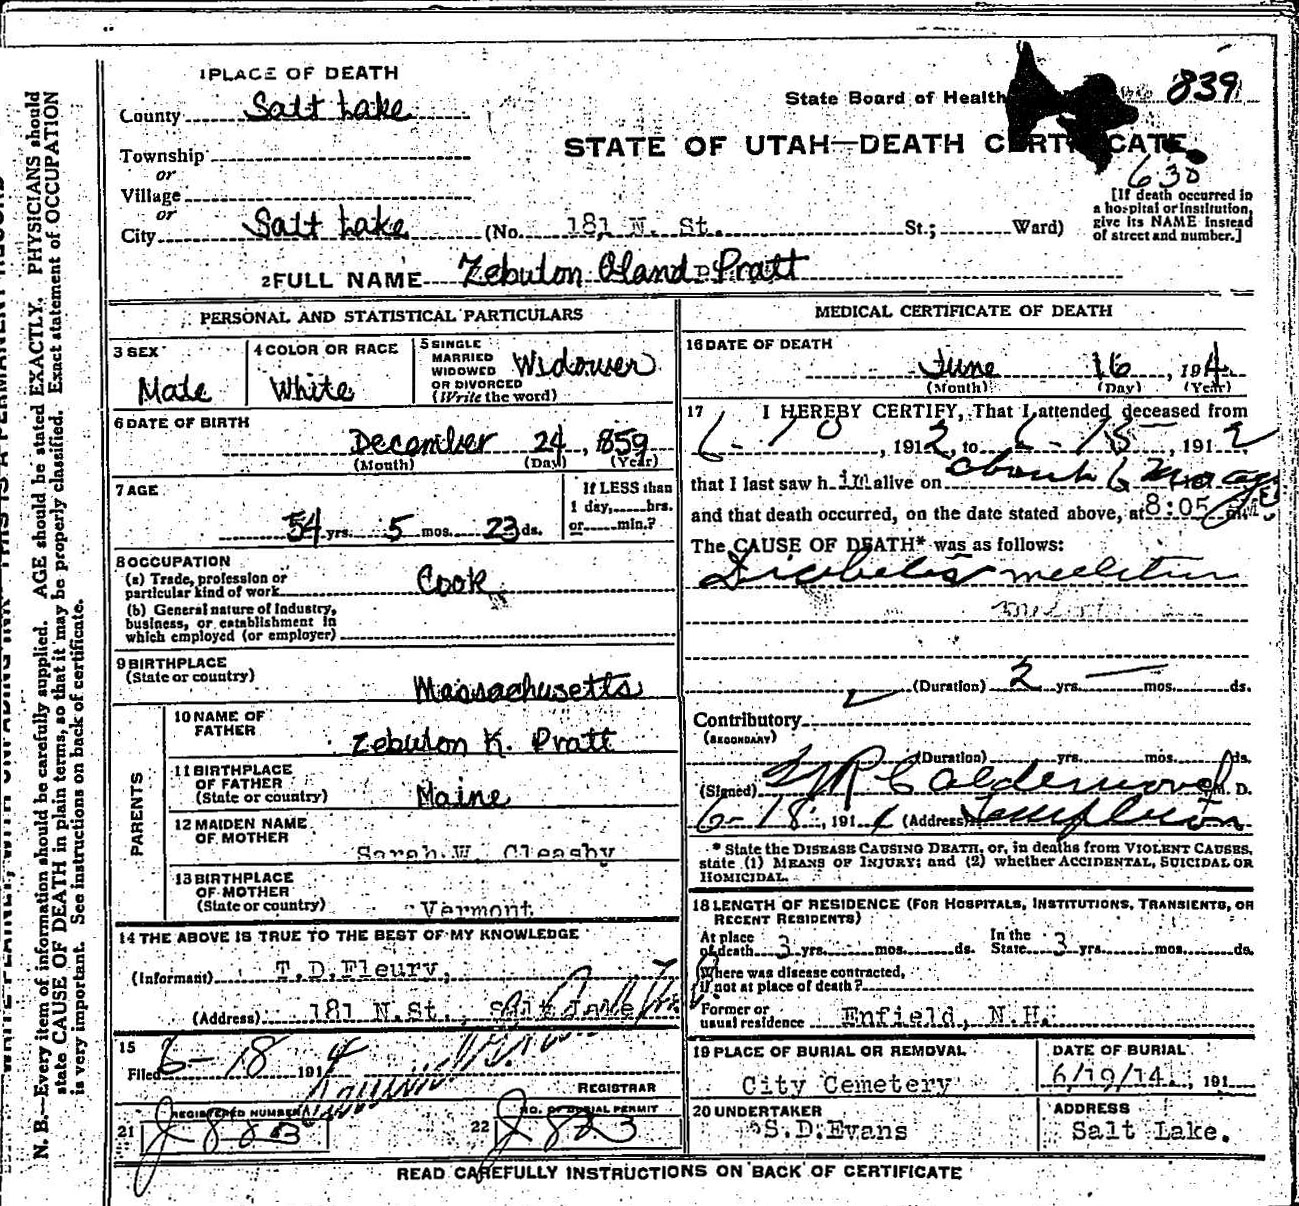 1 PLACE OF DEATH
County Salt Lake
State Board of Health 839
Township
STATE OF UTAH—DEATH CERTIFICATE
or
630
Village
or
City Salt Lake (No. 181 N. St. St.; Ward)
[If death occurred in
a hospital or institution,
give its NAME instead
of street and number.]
2 FULL NAME Zebulon Oland Pratt
PERSONAL AND STATISTICAL PARTICULARS
3 SEX
Male
4 COLOR OR RACE
White
5 SINGLE
MARRIED
WIDOWED
OR DIVORCED
(Write the word)
Widower
6 DATE OF BIRTH
December 24, 859
(Month) (Day) (Year)
7 AGE
54 yrs. 5 mos. 23 ds.
If LESS than
1 day, hrs.
or min.?
8 OCCUPATION
(a) Trade, profession or
particular kind of work Cook
(b) General nature of industry,
business, or establishment in
which employed (or employer)
9 BIRTHPLACE
(State or country)
Massachusetts
PARENTS
10 NAME OF
FATHER
Zebulon K. Pratt
11 BIRTHPLACE
OF FATHER
(State or country)
Maine
12 MAIDEN NAME
OF MOTHER
Sarah W. Cleasby
13 BIRTHPLACE
OF MOTHER
(State or country)
Vermont
14 THE ABOVE IS TRUE TO THE BEST OF MY KNOWLEDGE
(Informant) T.D.Fleury,
(Address) 181 N.St., Salt Lake
15
Filed 6-18 1914
REGISTRAR
REGISTERED NUMBER
21 J 883
NO. OF BURIAL PERMIT
22 J 883
MEDICAL CERTIFICATE OF DEATH
16 DATE OF DEATH
June 16, 1914
(Month) (Day) (Year)
17 I HEREBY CERTIFY, That I attended deceased from
6-10, 1912, to 6-15, 1912,
that I last saw him alive on about 6 mos ago
and that death occurred, on the date stated above, at 8:05 M.
The CAUSE OF DEATH* was as follows:
Diabetis mellitus
(Duration) 2 yrs. mos. ds.
Contributory
(SECONDARY)
(Duration) yrs. mos. ds.
(Signed) Calderwood M. D.
6-18, 1914 (Address) Templeton
* State the DISEASE CAUSING DEATH, or, in deaths from VIOLENT CAUSES,
state (1) MEANS OF INJURY; and (2) whether ACCIDENTAL, SUICIDAL OR
HOMICIDAL.
18 LENGTH OF RESIDENCE (FOR HOSPITALS, INSTITUTIONS, TRANSIENTS, OR
RECENT RESIDENTS)
At place
of death 3 yrs. mos. ds.
In the
State 3 yrs. mos. ds.
Where was disease contracted,
if not at place of death?
Former or
usual residence Enfield, N.H.
19 PLACE OF BURIAL OR REMOVAL
City Cemetery
DATE OF BURIAL
6/19/14, 191
20 UNDERTAKER
S.D.Evans
ADDRESS
Salt Lake.
READ CAREFULLY INSTRUCTIONS ON BACK OF CERTIFICATE
N. B.—Every item of information should be carefully supplied. AGE should be stated EXACTLY. PHYSICIANS should
state CAUSE OF DEATH in plain terms, so that it may be properly classified. Exact statement of OCCUPATION
is very important. See instructions on back of certificate.